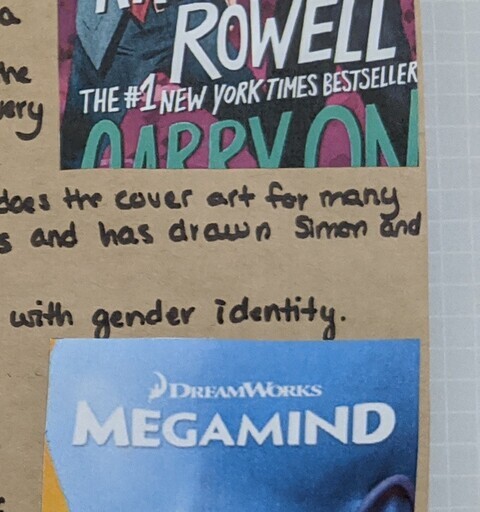 a
ROWELL
the
THE #1 NEW YORK TIMES BESTSELLER
very
CARRY ON
does the cover art for many
s and has drawn Simon and
with gender identity.
DREAMWORKS
MEGAMIND